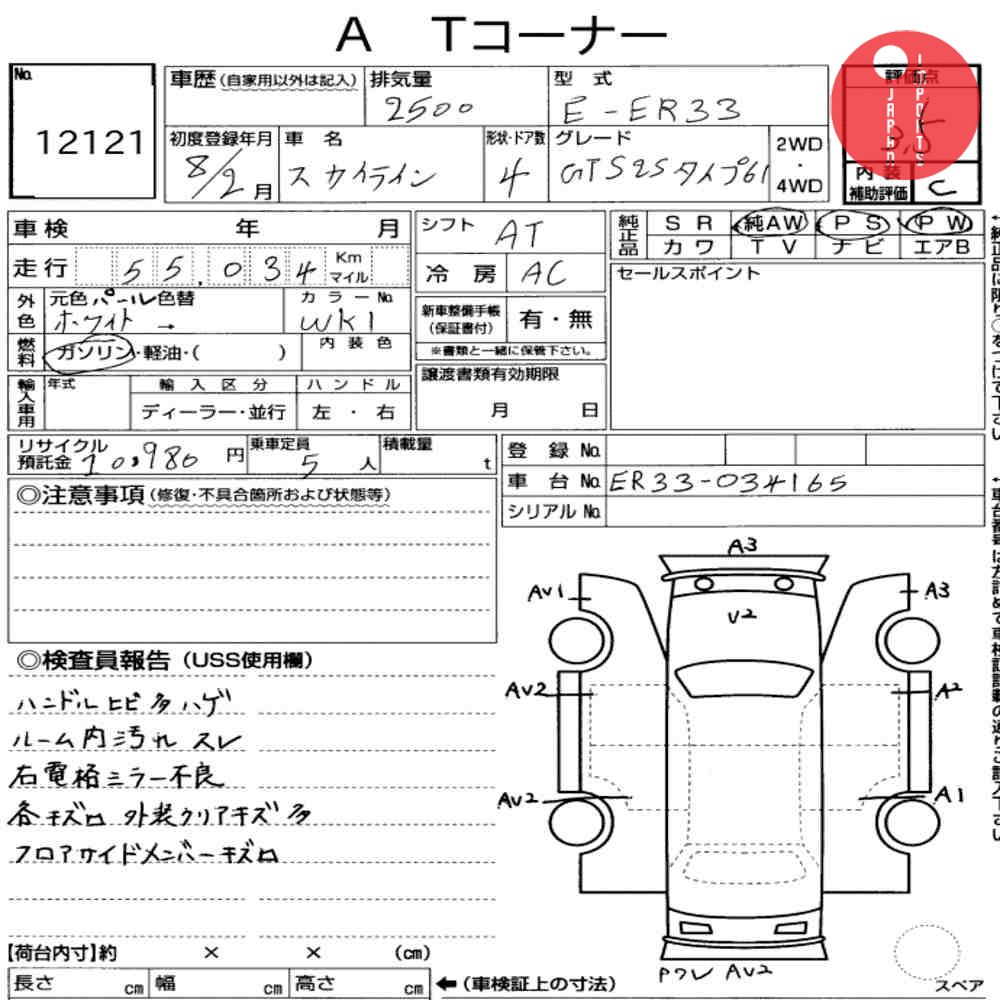 A Tコーナー
No. 12121
車歴(自家用以外は記入)
排気量 2500
型式 E-ER33
評価点 3.5
JAPAN IMPORTS
初度登録年月 8/2月
車名 スカイライン
形状・ドア数 4
グレード GTS25タイプG1
2WD・4WD
内装補助評価 C
車検 年 月
走行 55,034 Km マイル
シフト AT
冷房 AC
純正品 SR 純AW PS PW
カワ TV ナビ エアB
セールスポイント
外色 元色 パール 色替 ホワイト →
カラーNo. WK1
新車整備手帳(保証書付) 有・無
※書類と一緒に保管下さい。
燃料 ガソリン・軽油・( )
内装色
輸入車用 年式 輸入区分 ハンドル
ディーラー・並行 左・右
譲渡書類有効期限
月 日
リサイクル預託金 10,980円
乗車定員 5人
積載量 t
登録No.
車台No. ER33-034165
シリアルNo.
◎注意事項(修復・不具合箇所および状態等)
◎検査員報告(USS使用欄)
ハンドルヒビ多ハゲ
ルーム内汚れ スレ
右電格ミラー不良
各キズロ 外装クリアキズ多
フロアサイドメンバーキズロ
A3
AV1
A3
V2
AV2
A2
AV2
A1
Pワレ AV2
スペア
【荷台内寸】約 × × (cm)
長さ cm 幅 cm 高さ cm ←(車検証上の寸法)